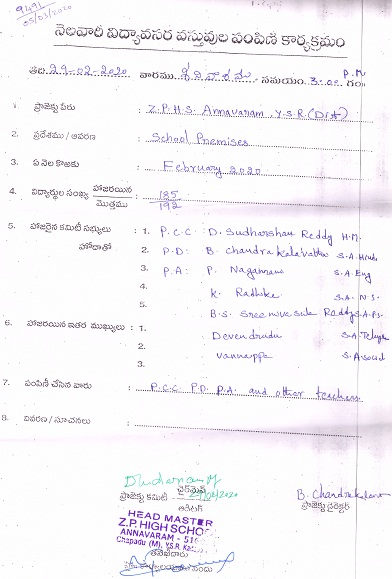 9491
05/03/2020
నెలవారీ విద్యావసర వస్తువుల పంపిణీ కార్యక్రమం
తేది 29-02-2020 వారము శనివారము సమయం 3-00 P.M గం॥
1. ప్రాజెక్టు పేరు : Z.P.H.S. Annavaram, Y.S.R (Dist)
2. ప్రదేశము / ఆవరణ : School Premises
3. ఏ నెల కొఱకు : February 2020
4. విద్యార్థుల సంఖ్య హాజరయిన / మొత్తము : 185 / 192
5. హాజరైన కమిటీ సభ్యులు : 1. P.C.C : D. Sudharshan Reddy H.M.
హోదాతో 2. P.D : B. Chandrakalavathi S.A Hindi
3. P.A : P. Nagamani S.A. Eng
4. K. Radhika S.A. N.S.
5. B.S. Sreenivasula Reddy S.A. P.S.
6. హాజరయిన ఇతర ముఖ్యులు : 1. Devendrudu S.A. Telugu
2. Vannappa S.A social
3.
7. పంపిణీ చేసిన వారు : P.C.C. P.D. P.A. and other teachers
8. వివరణ / సూచనలు :
చైర్మెన్
ప్రాజెక్టు కమిటీ 29/02/2020 B. Chandrakala
ఆడిటర్ ప్రాజెక్టు డైరెక్టర్
HEAD MASTER
Z.P. HIGH SCHOOL
ANNAVARAM - 516
Chapadu (M), Y.S.R.
తహశీల్దారు